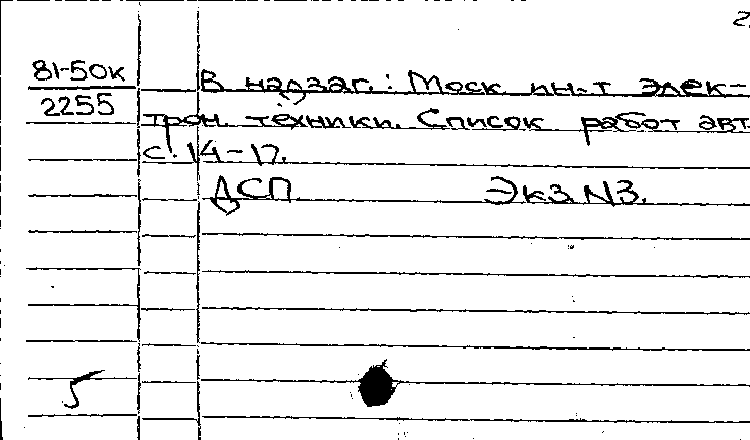 2
81-50к
2255
В надзаг.: Моск. ин-т элек-
трон. техники. Список работ авт.
с. 14-17.
ДСП Экз. N3.
5